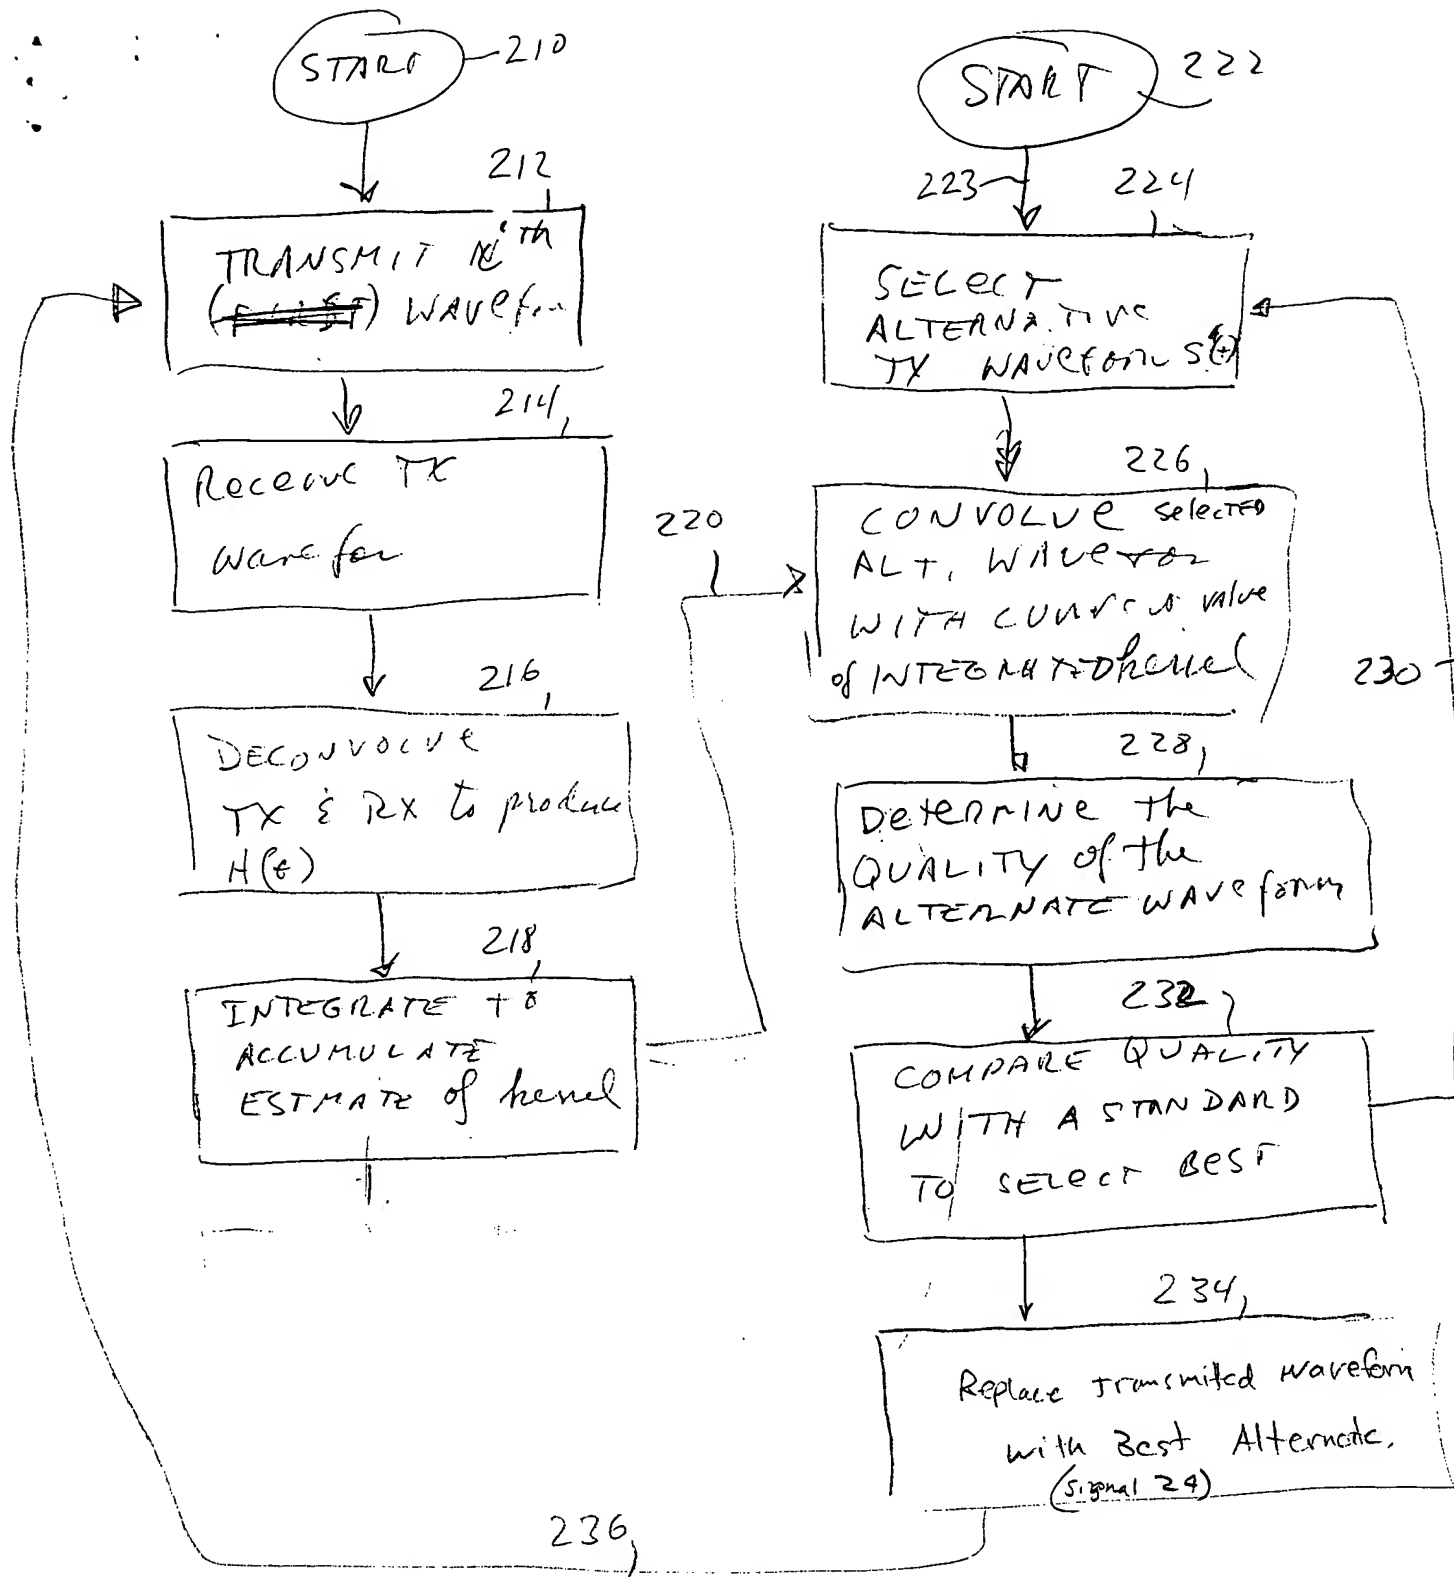 START
210
212
TRANSMIT ith
WAVeform
214
Receive TX
wavefor
216
DECONVOLVE
TX & RX to produce
H(t)
218
INTEGRATE to
ACCUMULATE
ESTMATE of kernel
220
START
222
223
224
SELecT
ALTERNATIVE
TX WAVEform S(t)
226
CONVOLVe SelecTED
ALT. WAVefor
WITH CURRENT value
of INTEGRATED kernel
228
DeteRMINE the
QUALITY of the
ALTERNATE WAVeform
230
232
COMPARE QUALITY
WITH A STANDARD
TO SELecT BEST
234
Replace Transmited Waveform
with Best Alternate.
(signal 24)
236